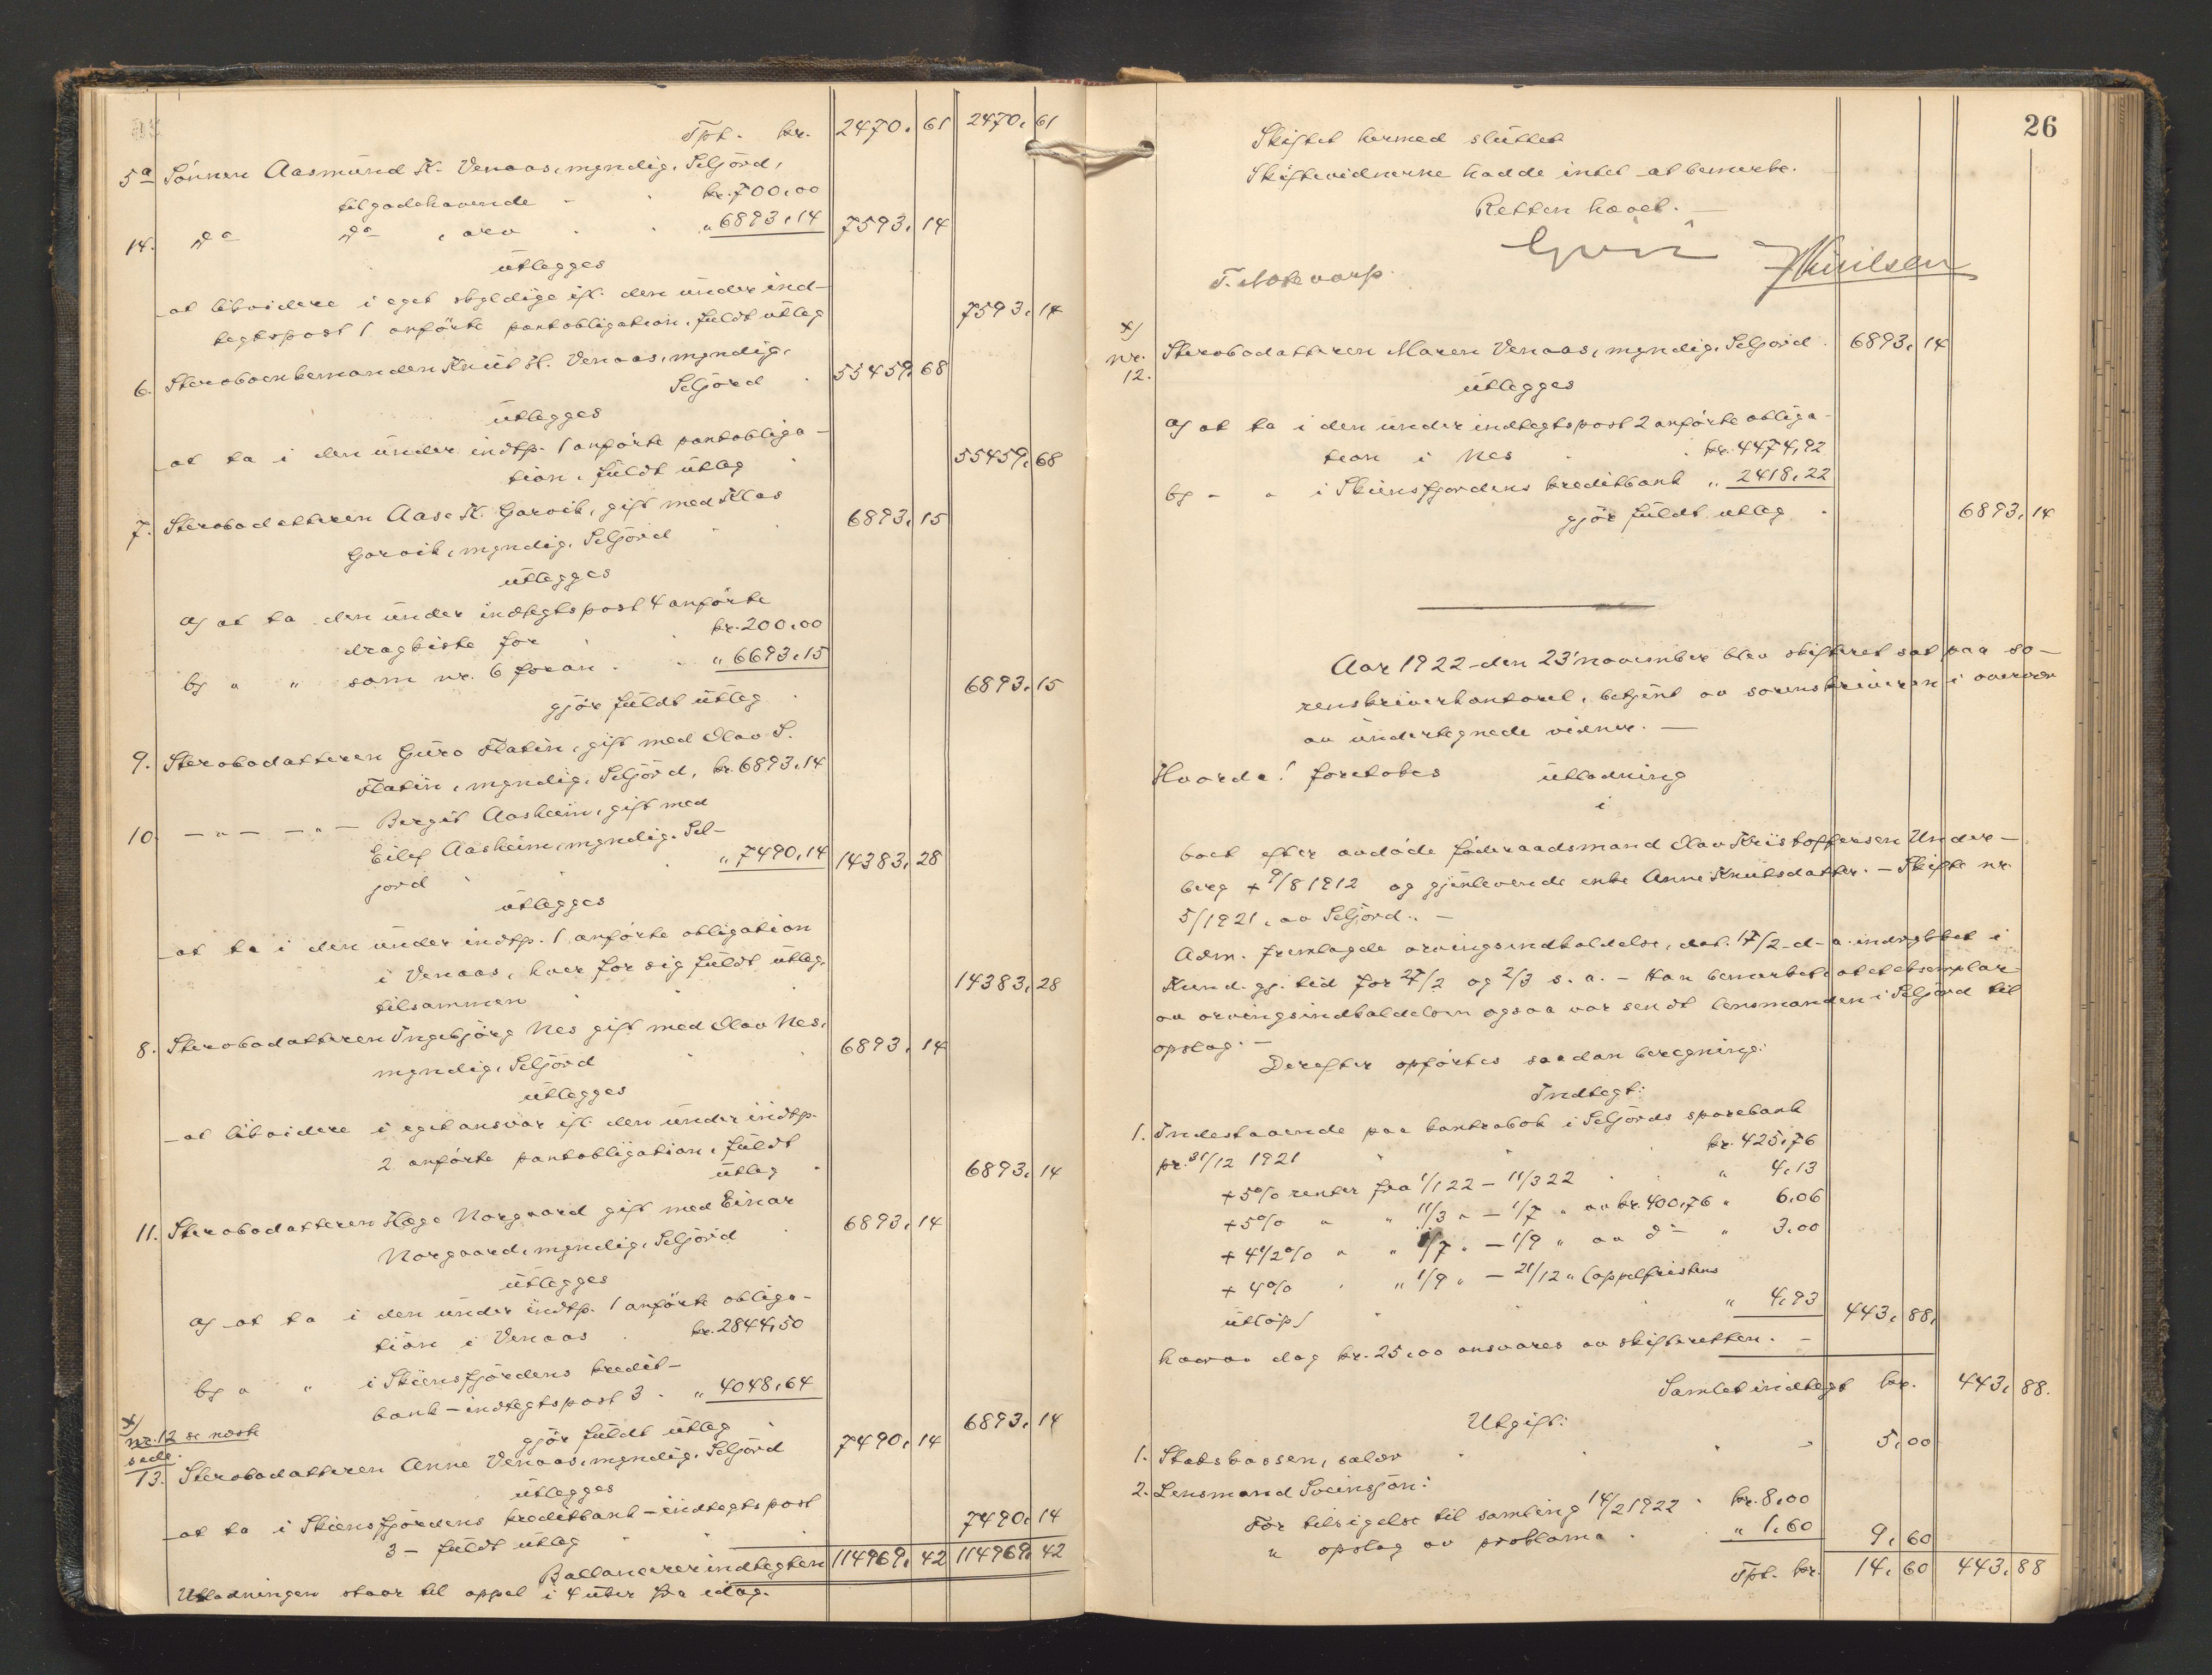 Tpt. kr. 2470,61 2470,61
5a Sönnen Aasmund K. Venaas, myndig, Seljord,
tilgodehavende kr. 700,00
14. do do , arv " 6893,14 7593,14
utlegges
at likvidere i eget skyldige ifl. den under ind-
tegtspost 1 anförte pantobligation, fuldt utlæg 7593,14
6. Sterboenkemanden Knut H. Venaas, myndig,
Seljord 55459,68
utlegges
at ta i den under indtp. 1 anförte pantobliga-
tion, fuldt utlæg 55459,68
7. Sterbodatteren Aase K. Garvik, gift med Klas
Garvik, myndig, Seljord 6893,15
utlegges
a) at ta den under indtegtspost 4 anförte
dragkiste for kr. 200,00
b) " " som nr. 6 foran " 6693,15
gjör fuldt utlæg 6893,15
9. Sterbodatteren Guro Flatin, gift med Olav S.
Flatin, myndig, Seljord, kr. 6893,14
10. —"— —"— Bergit Aasheim, gift med
Eilef Aasheim, myndig, Sel-
jord " 7490,14 14383,28
utlegges
at ta i den under indtp. 1 anförte obligation
i Venaas, hver for sig fuldt utlæg,
tilsammen 14383,28
8. Sterbodatteren Ingebjörg Nes gift med Olav Nes,
myndig, Seljord 6893,14
utlegges
at likvidere i eget ansvar ifl. den under indtp.
2 anförte pantobligation, fuldt
utlæg 6893,14
11. Sterbodatteren Hæge Norgaard gift med Einar
Norgaard, myndig, Seljord 6893,14
utlegges
a) at ta i den under indtp. 1 anförte obliga-
tion i Venaas kr. 2844,50
b) " " i Skiensfjordens kredit-
bank – indtegtspost 3 " 4048,64
gjör fuldt utlæg 6893,14
x) nr. 12 se næste
side.
13. Sterbodatteren Anne Venaas, myndig, Seljord 7490,14
utlegges
at ta i Skiensfjordens kreditbank – indtegtspost
3 – fuldt utlæg 7490,14
Ballancerer indtegten 114969,42 114969,42
Utlodningen staar til appel i 4 uker fra idag.
26
Skiftet hermed sluttet
Skiftevidnerne hadde intet at bemerke.
Retten hævet. —
T. Notevarp.
x)
nr.
12. Sterbodatteren Maren Venaas, myndig, Seljord 6893,14
utlegges
a) at ta i den under indtegtspost 2 anförte obliga-
tion i Nes kr. 4474,92
b) – " i Skiensfjordens kreditbank " 2418,22
gjör fuldt utlæg 6893,14
Aar 1922 den 23' november blev skifteret sat paa so-
renskriverkontoret, betjent av sorenskriveren i overvær
av undertegnede vidner. —
Hvorda! foretokes utlodning
i
boet efter avdöde föderaadsmand Olav Kristoffersen Under-
berg + 9/8 1912 og gjenlevende enke Anne Knutsdatter. — Skifte nr.
5/1921, av Seljord. —
Adm. fremlagde arvingsindkaldelse, dat. 17/2 d. a. indrykket i
Kund. gj. tid for 27/2 og 2/3 s. a. – Han bemerket at et eksemplar
av arvingsindkaldelsen ogsaa var sendt lensmanden i Seljord til
opslag. —
Derefter opförtes saadan beregning:
Indtegt:
1. Indestaaende paa kontrabok i Seljords sparebank
pr. 31/12 1921 kr. 425,76
+ 5% renter fra 1/1 22 – 11/3 22 " 4,13
+ 5% " " 11/3 " – 1/7 " av kr. 400,76 " 6,06
+ 4 1/2% " " 1/7 " – 1/9 " av do " 3,00
+ 4% " " 1/9 " – 21/12 " (appelfristens
utlöp) " 4,93 443,88,
hvorav dog kr. 25,00 ansvares av skifteretten. –
Samlet indtegt kr. 443,88.
Utgift:
1. Statskassen, salær 5,00
2. Lensmand Sveinsjön:
For tilsigelse til samling 14/2 1922 kr. 8,00
" opslag av proklama " 1,60 9,60
Tpt. kr. 14,60 443,88